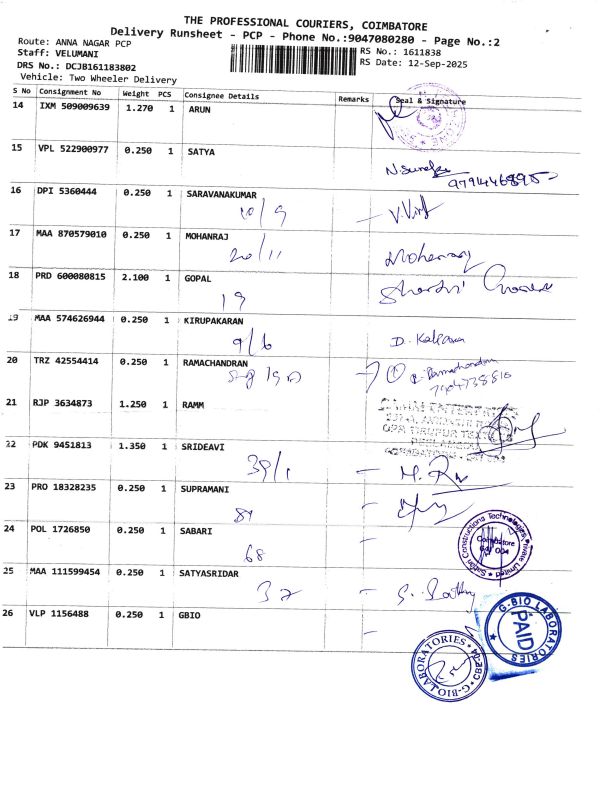 THE PROFESSIONAL COURIERS, COIMBATORE
Delivery Runsheet - PCP - Phone No.:9047080280 - Page No.:2
Route: ANNA NAGAR PCP
Staff: VELUMANI
DRS No.: DCJB161183802
Vehicle: Two Wheeler Delivery
RS No.: 1611838
RS Date: 12-Sep-2025
S No Consignment No Weight PCS Consignee Details Remarks Seal & Signature
14 IXM 509009639 1.270 1 ARUN
15 VPL 522900977 0.250 1 SATYA
16 DPI 5360444 0.250 1 SARAVANAKUMAR
10/9
17 MAA 870579010 0.250 1 MOHANRAJ
20/11 Mohanraj
18 PRD 600080815 2.100 1 GOPAL
19
19 MAA 574626944 0.250 1 KIRUPAKARAN
9/6
20 TRZ 42554414 0.250 1 RAMACHANDRAN
R. Ramachandran
21 RJP 3634873 1.250 1 RAMM
22 PDK 9451813 1.350 1 SRIDEAVI
39/1
23 PRO 18328235 0.250 1 SUPRAMANI
24 POL 1726850 0.250 1 SABARI
68
Constructions Technologies Private Limited
Coimbatore
25 MAA 111599454 0.250 1 SATYASRIDAR
32
26 VLP 1156488 0.250 1 GBIO
G-BIO LABORATORIES
PAID
G-BIO LABORATORIES